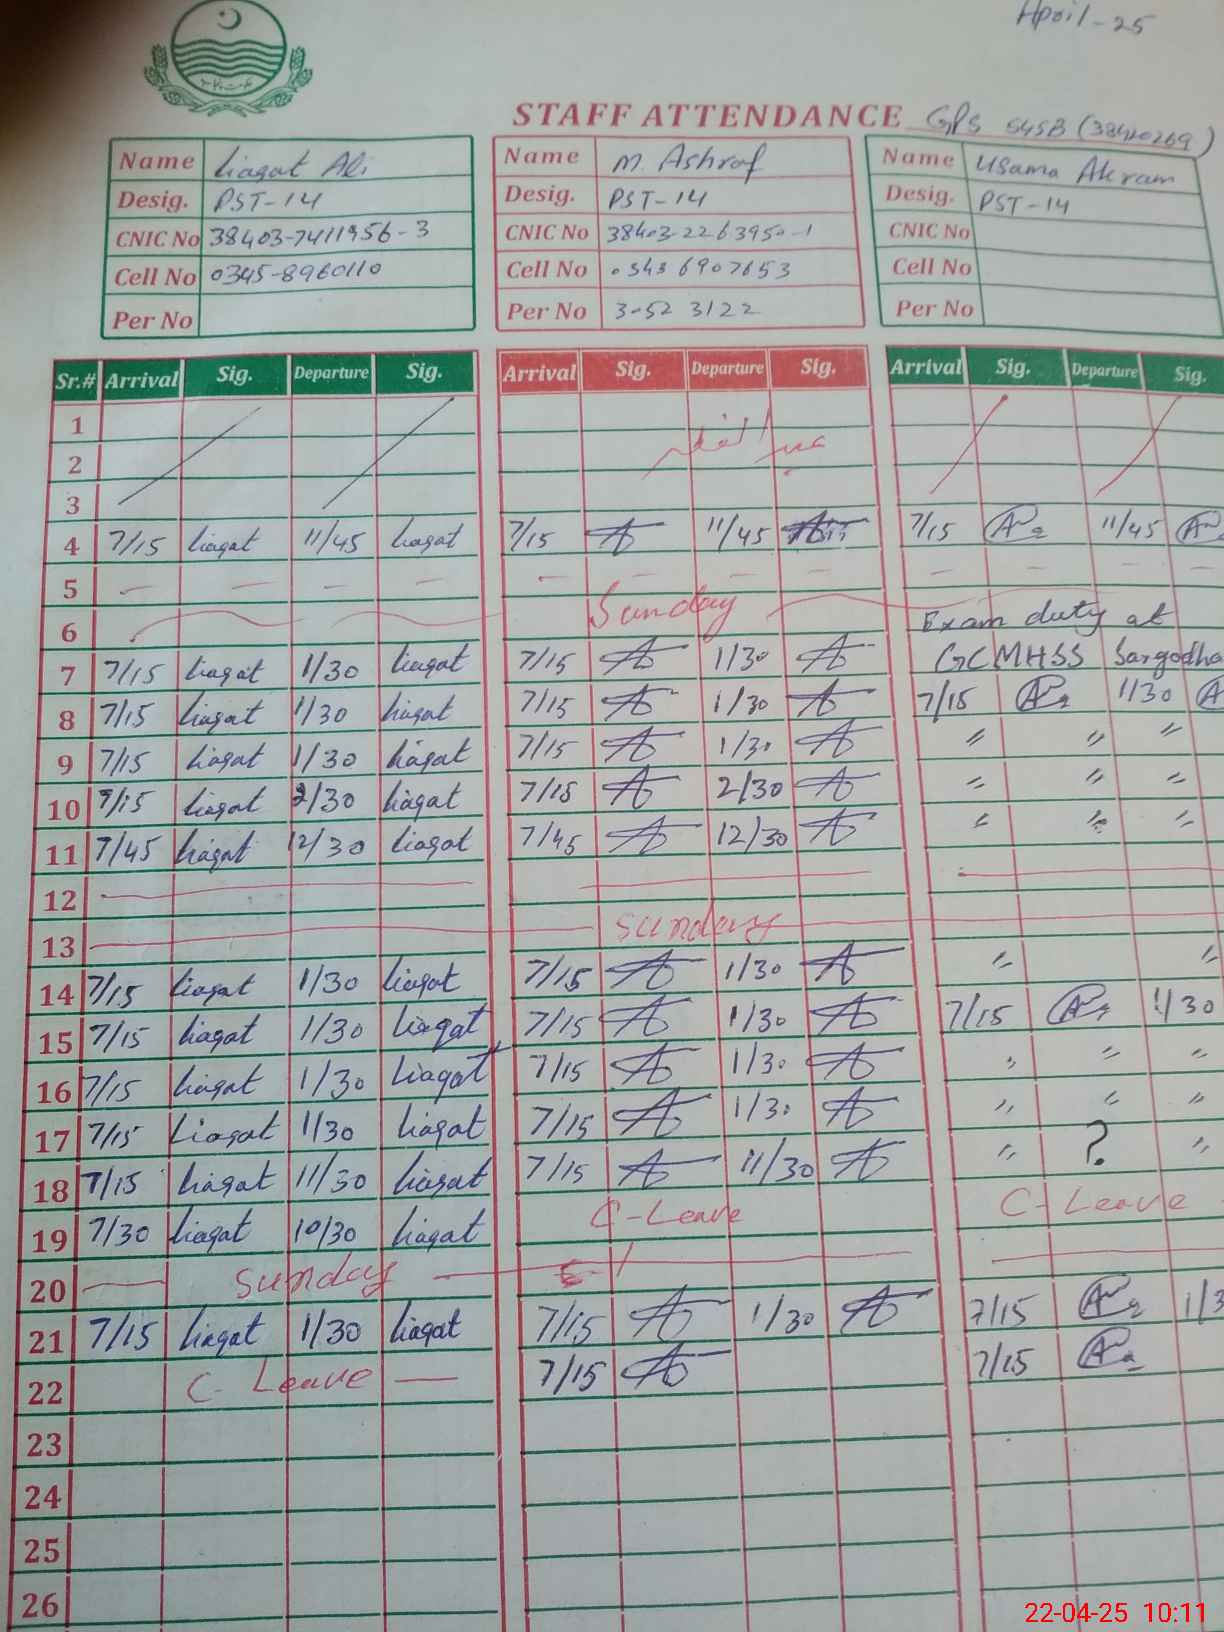 April-25
STAFF ATTENDANCE GPS 54SB (38410269)
Name Liaqat Ali Name M. Ashraf Name Usama Akram
Desig. PST-14 Desig. PST-14 Desig. PST-14
CNIC No 38403-7411956-3 CNIC No 38403-2263950-1 CNIC No
Cell No 0345-8960110 Cell No 0343 6907653 Cell No
Per No Per No 3-52 3122 Per No
Sr.# Arrival Sig. Departure Sig. Arrival Sig. Departure Sig. Arrival Sig. Departure Sig.
1
2 عید الفطر
3
4 7/15 liaqat 11/45 liaqat 7/15 11/45 7/15 11/45
5 — — — — — — — — — — — —
6 Sunday Exam duty at
7 7/15 liaqat 1/30 liaqat 7/15 1/30 GCMHSS Sargodha
8 7/15 liaqat 1/30 liaqat 7/15 1/30 7/15 1/30
9 7/15 liaqat 1/30 liaqat 7/15 1/30 " " "
10 7/15 liaqat 2/30 liaqat 7/15 2/30 " " "
11 7/45 liaqat 12/30 liaqat 7/45 12/30 " " "
12
13 Sunday
14 7/15 liaqat 1/30 liaqat 7/15 1/30 " "
15 7/15 liaqat 1/30 liaqat 7/15 1/30 7/15 1/30
16 7/15 liaqat 1/30 liaqat 7/15 1/30 " " "
17 7/15 Liaqat 1/30 liaqat 7/15 1/30 " " "
18 7/15 liaqat 11/30 liaqat 7/15 11/30 " ? "
19 7/30 liaqat 10/30 liaqat C-Leave C-Leave
20 — Sunday —
21 7/15 liaqat 1/30 liaqat 7/15 1/30 7/15 1/3
22 C-Leave — 7/15 7/15
23
24
25
26
22-04-25 10:11